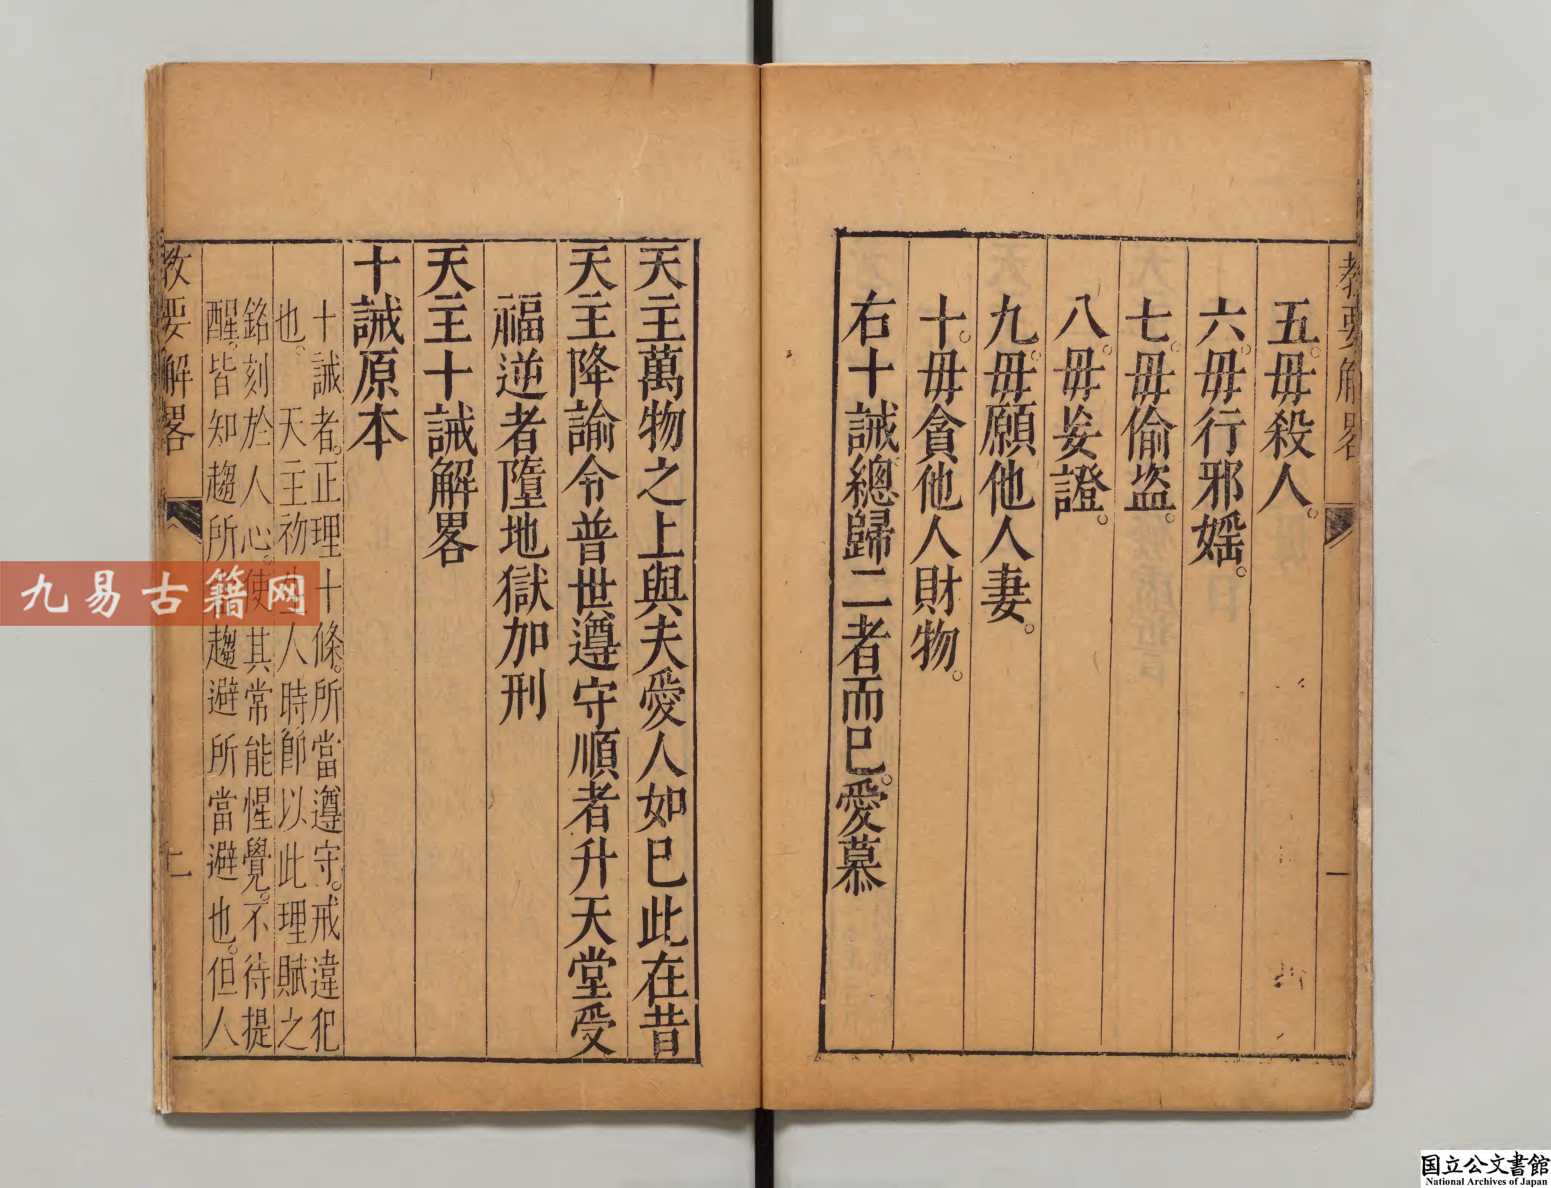 教要解畧
一
五。毋殺人。
六。毋行邪婬。
七。毋偷盗。
八。毋妄證。
九。毋願他人妻。
十。毋貪他人財物。
右十誡總歸二者而已。愛慕
天主萬物之上與夫愛人如已此在昔
天主降諭令普世遵守順者升天堂受
福逆者墮地獄加刑
天主十誡解畧
十誡原本
十誡者。正理十條。所當遵守。戒違犯
也。天主初生人時卽以此理賦之
銘刻於人心。使其常能惺覺。不待提
醒。皆知趨所趨避所當避也。但人
教要解畧
二
九易古籍网
国立公文書館
National Archives of Japan